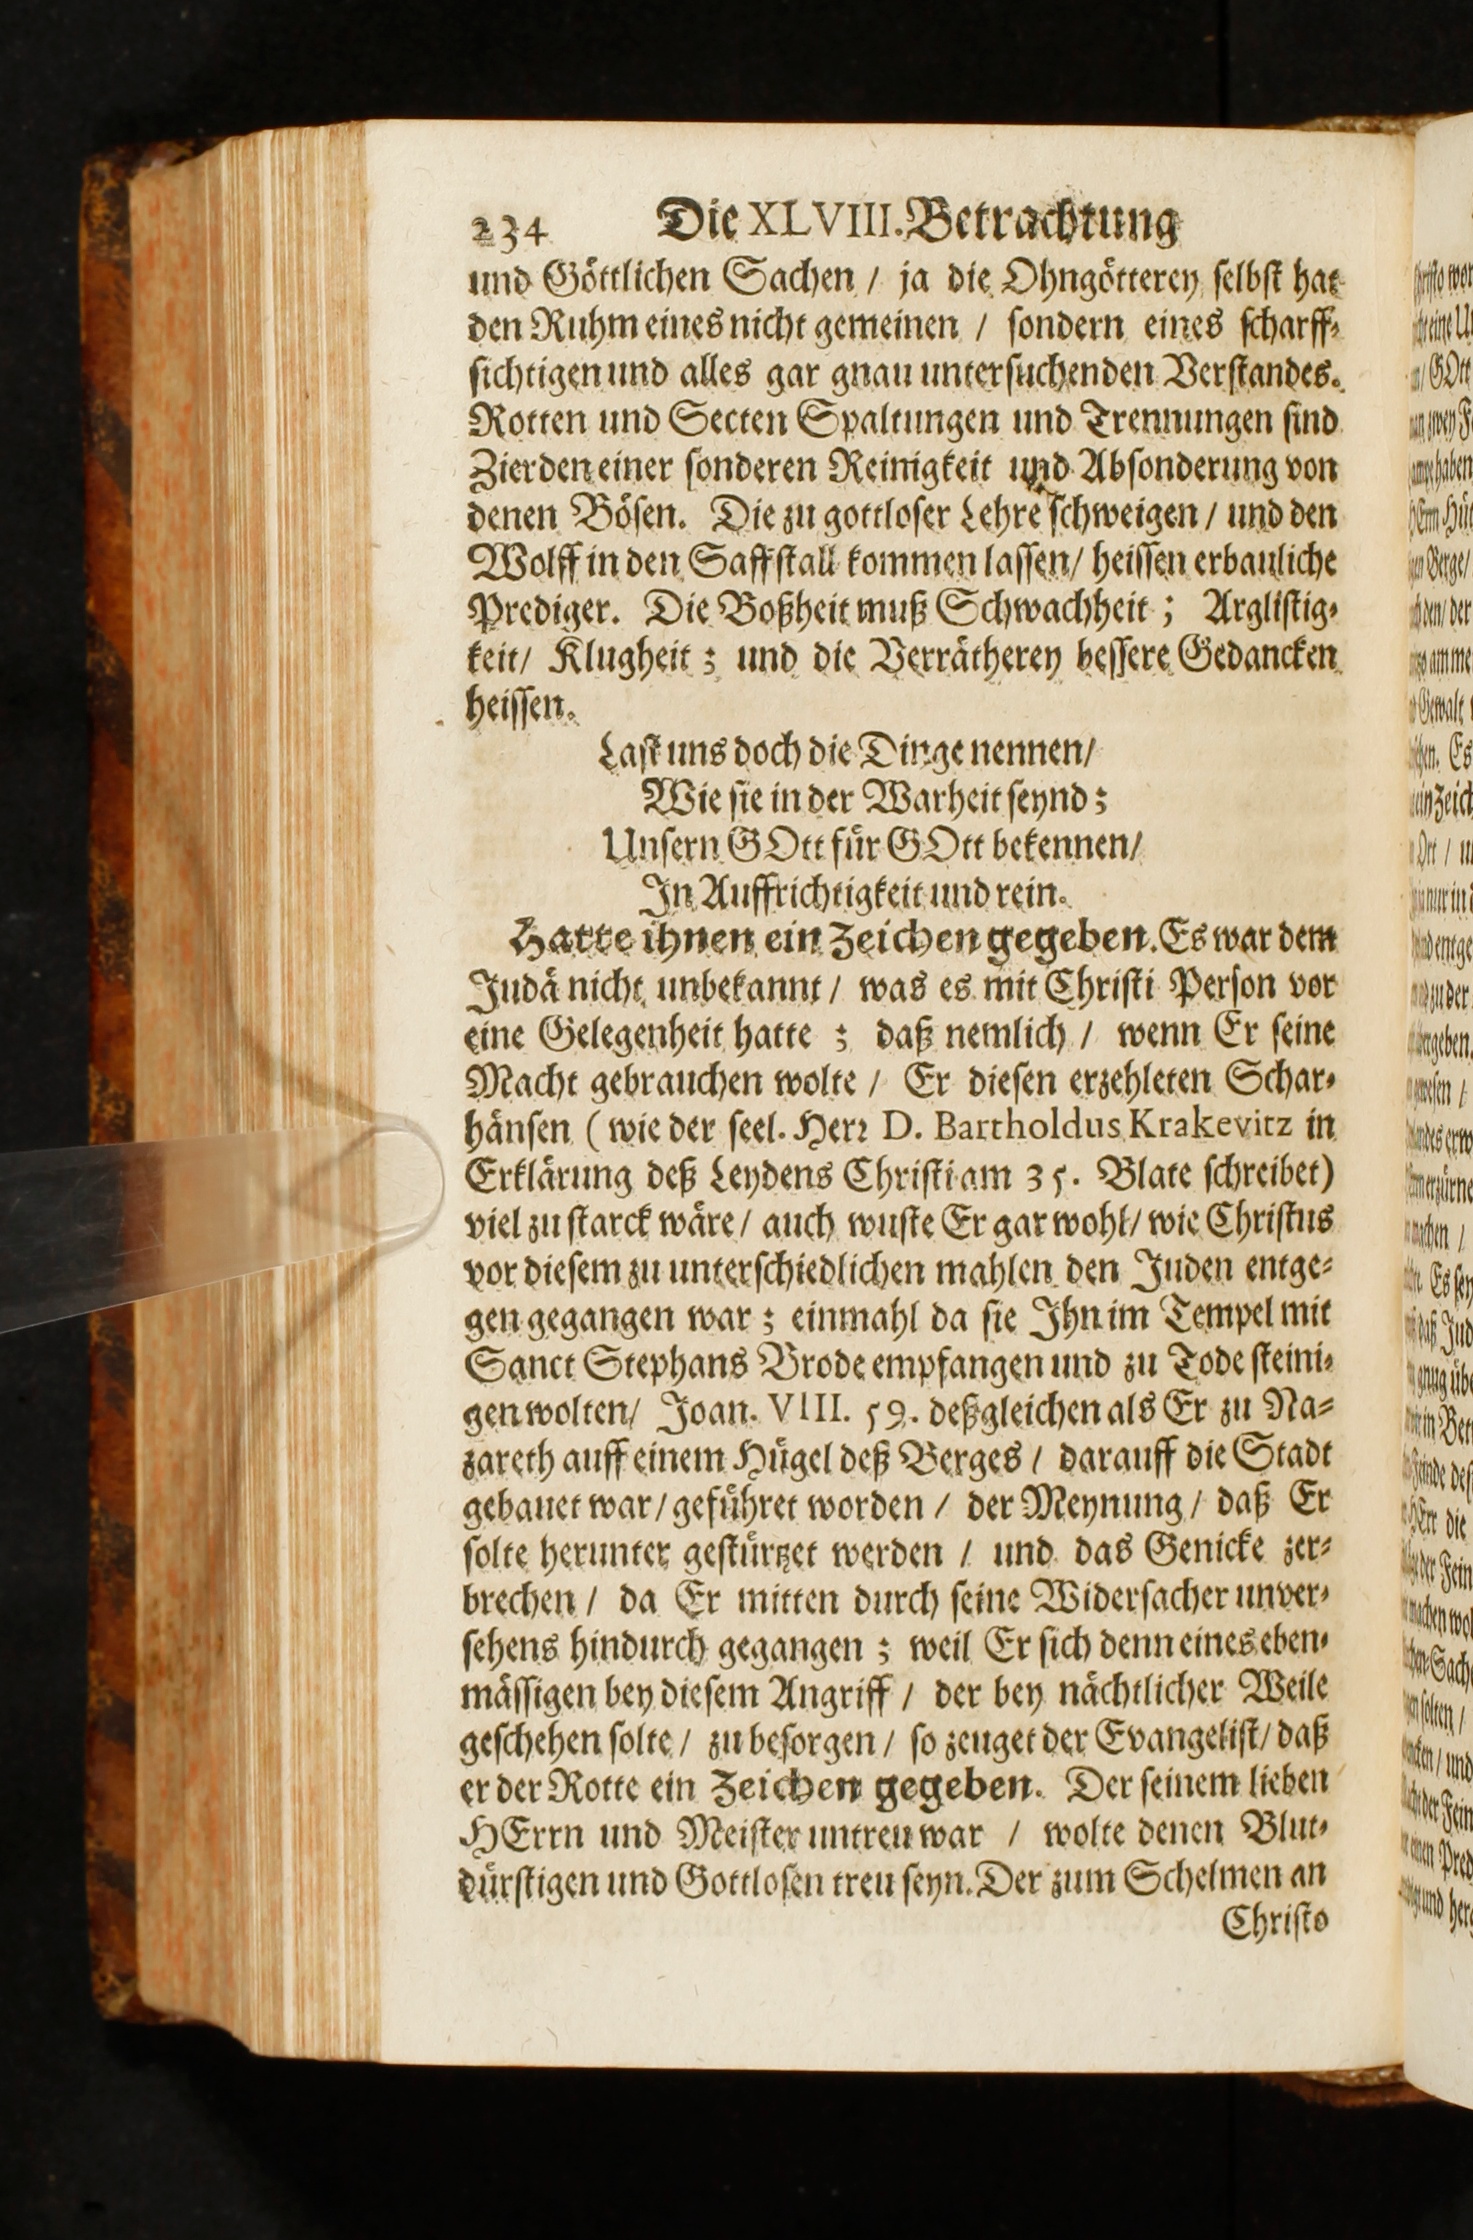 234 Die XLVIII. Betrachtung
und Göttlichen Sachen / ja die Ohngötterey selbst hat
den Ruhm eines nicht gemeinen / sondern eines scharff-
sichtigen und alles gar gnau untersuchenden Verstandes.
Rotten und Secten Spaltungen und Trennungen sind
Zierden einer sonderen Reinigkeit und Absonderung von
denen Bösen. Die zu gottloser Lehre schweigen / und den
Wolff in den Saffstall kommen lassen / heissen erbauliche
Prediger. Die Boßheit muß Schwachheit ; Arglistig-
keit / Klugheit ; und die Verrätherey bessere Gedancken
heissen.
Last uns doch die Dinge nennen /
Wie sie in der Warheit seynd ;
Unsern GOtt für GOtt bekennen /
In Auffrichtigkeit und rein.
Hatte ihnen ein Zeichen gegeben. Es war dem
Judä nicht unbekannt / was es mit Christi Person vor
eine Gelegenheit hatte ; daß nemlich / wenn Er seine
Macht gebrauchen wolte / Er diesen erzehleten Schar-
hänsen ( wie der seel. Herr D. Bartholdus Krakevitz in
Erklärung deß Leydens Christi am 35. Blate schreibet )
viel zu starck wäre / auch wuste Er gar wohl / wie Christus
vor diesem zu unterschiedlichen mahlen den Juden entge-
gen gegangen war ; einmahl da sie Ihn im Tempel mit
Sanct Stephans Brode empfangen und zu Tode steini-
gen wolten / Joan. VIII. 59. deßgleichen als Er zu Na-
zareth auff einem Hügel deß Berges / darauff die Stadt
gebauet war / geführet worden / der Meynung / daß Er
solte herunter gestürtzet werden / und das Genicke zer-
brechen / da Er mitten durch seine Widersacher unver-
sehens hindurch gegangen ; weil Er sich denn eines eben-
mässigen bey diesem Angriff / der bey nächtlicher Weile
geschehen solte / zu besorgen / so zeuget der Evangelist / daß
er der Rotte ein Zeichen gegeben. Der seinem lieben
HErrn und Meister untreu war / wolte denen Blut-
dürstigen und Gottlosen treu seyn. Der zum Schelmen an
Christo